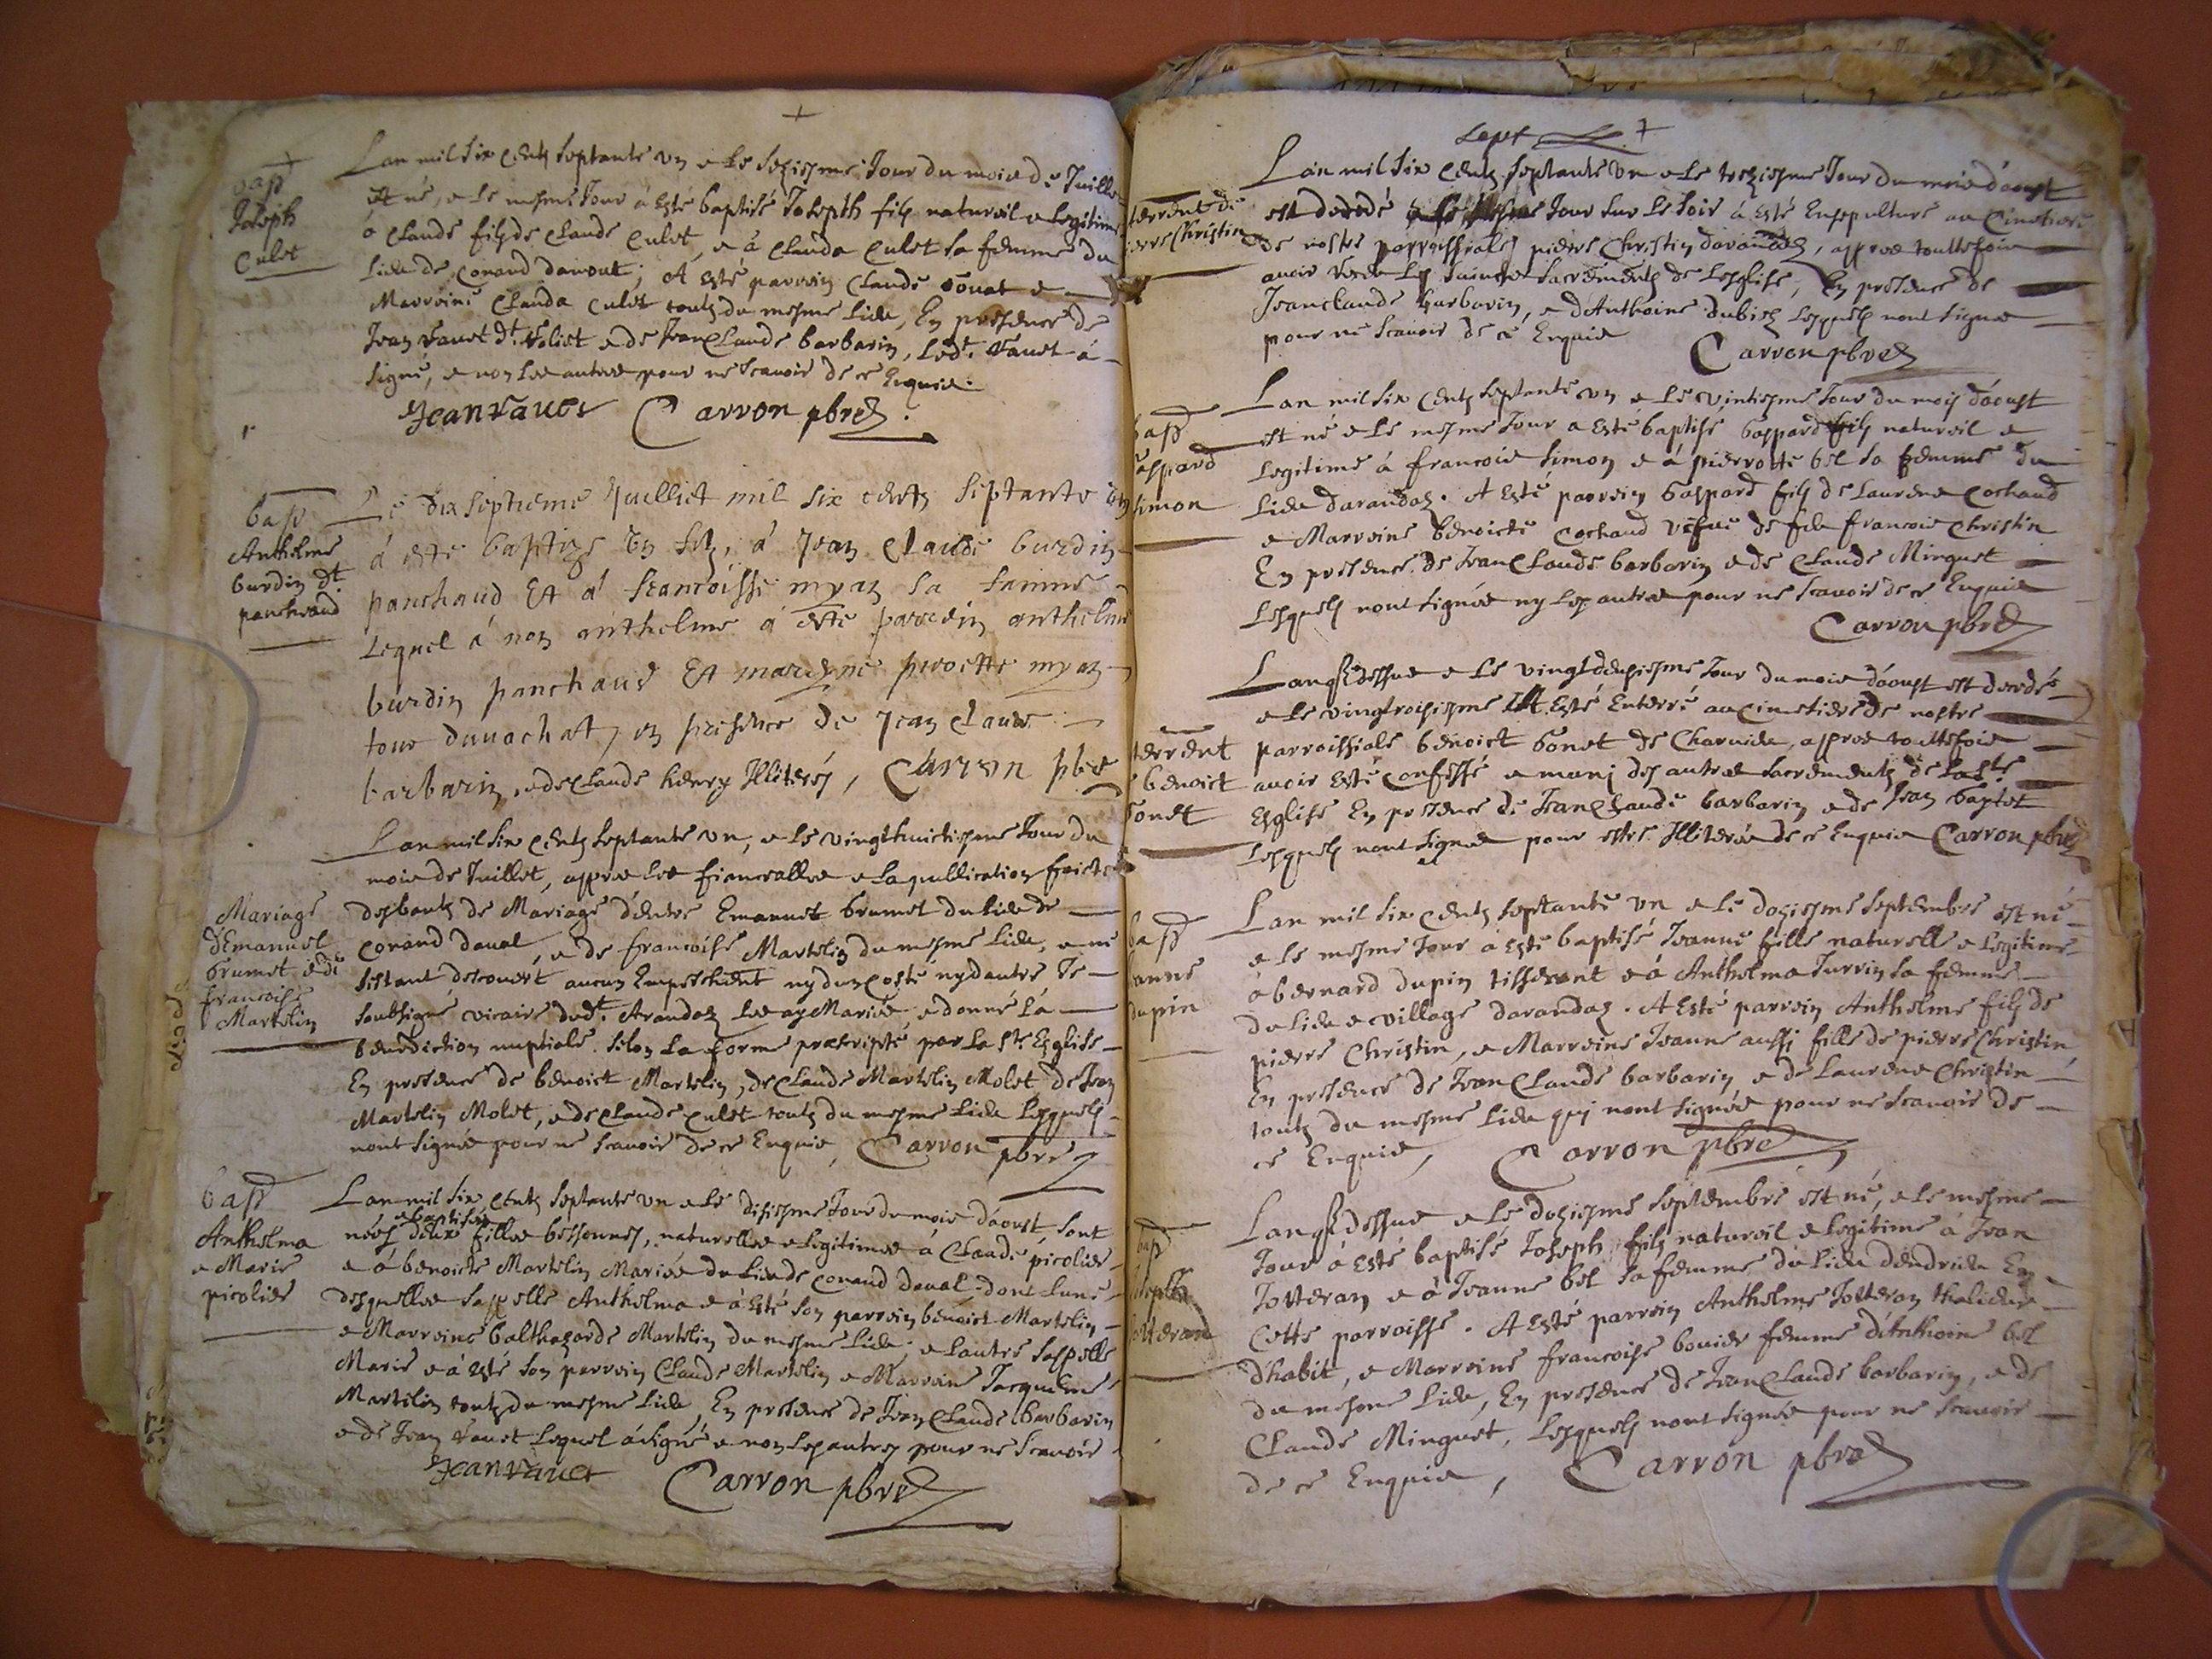 bap
Joseph
Culet
Lan mil six centz septante un e le seziesme Jour du mois de Juillet
est né, e le mesme Jour à esté baptisé Joseph filz natureil e legitime
à Claude filz de Claude Culet, e à Clauda Culet sa femme du
lieu de Conand davout; A esté parrein Claude Sonat e
Marreine Clauda Culet toutz du mesme lieu, En presence de
Jean vauet dt. Voliet e de Jean Claude barbarin, Ledt. vauet à
signé, e non les autres pour ne scavoir de ce Enquis.
Jean vauet Carron pbre
bap
Anthelme
burdin dt
panchaud
Le dix septieme Juelliet mil six centz septante un
à esté baptize un filz, à Jean Claude burdin
panchaud Et à francoisse myaz sa famme
lequel à nom anthelme à esté parrein anthelme
burdin panchaud Et mareyne peroette myaz
tous duuachat, en presence de Jean Claude
barbarin, e de Claude henry Illiterés, Carron pbre
Mariage
d'Emanuel
brumet e de
francoise
Martelin
Lan mil six centz septante un, e le vingthuictiesme Jour du
mois de Juillet, appres les fiancealles e la publication faicte
des bantz de Mariage d'entre Emanuel brumet du lieu de
Conand daual, e de francoise Martelin du mesme lieu, e ne
sestant descouert aucun Empeschent ny dun costé ny dautre Je
soubsigné vicaire dudt. Arandaz les ay Mariés, e donné la
benediction nuptiale selon la forme prescripte par la ste Esglise
En presence de benoict Martelin, de Claude Martelin Molet de Jean
Martelin Molet, e de Claude Culet toutz du mesme lieu lesquelz
nont signés pour ne scavoir de ce Enquis, Carron pbre
bap
Anthelma
e Marie
picolier
Lan mil six centz septante un e le disiesme Jour du mois d'aoust, sont
neés e baptisées deux filles bessonnes, naturelles e legitimes à Claude picolier
e à benoicte Martelin Mariés du lieu de Conand daual dont lune
desquelles sappelle Anthelma e à esté son parrein benoict Martelin
e Marreine balthazarde Martelin du mesme lieu e lautre sappelle
Marie e à esté son parrein Claude Martelin e Marreine Jacqueme
Martelin toutz du mesme lieu En presence de Jean Claude barbarin
e de Jean vauet lequel à signé e non les autres pour ne scavoir
Jean vauet Carron pbre
sept
terrent de
ierre Christin
Lan mil six centz septante un e le treziesme Jour du mois d'aoust
est decedé e le mesme Jour sur le soir à esté Ensepulturé au Cimetiere
de nostre parroissiale pierre Christin darandaz, appres touttefois
auoir receu les sainctz sacrementz de lesglise, En presence de
Jean claude barbarin, e d'Anthoine dubiez lesquelz nont signés
pour ne scavoir de ce Enquis Carron pbre
bap
aspard
simon
Lan mil six centz septante un e le vintiesme Jour du mois d'aoust
est né e le mesme Jour a esté baptisé Gaspard filz natureil e
legitime à francois simon e à pierrotte bel sa femme du
lieu darandaz. A esté parrein Gaspard filz de Laurens Cochaud
e Marreine benoicte Cochaud vefue de feu francois Christin
En presence de Jean Claude barbarin e de Claude Minguet
lesquelz nont signés ny les autres pour ne scavoir de ce Enquis
Carron pbre
terrent
benoict
Sonet
Lan q dessus e le vingtdeusiesme Jour du mois d'aoust est decedé
e le vingtroisiesme à Esté Enterré au cimetiere de nostre
parroissiale benoict Sonet de Charuieu, appres touttefois
auoir esté confessé e muni des autres sacrementz de la ste
Esglise En presence de Jean Claude barbarin e de Jean baptet
lesquelz nont signés pour estre Illiterés de ce Enquis Carron pbre
bap
eanne
dupin
Lan mil six centz septante un e le dosiesme septembre est née
e le mesme Jour à esté baptisé Jeanne fille naturelle e legitime
à bernard dupin tisserant e à Anthelma Juvvin sa femme
du lieu e village darandaz. A esté parrein Anthelme filz de
pierre Christin, e Marreine Jeanne aussi fille de pierre Christin
En presence de Jean Claude barbarin e de Laurens Christin
toutz du mesme lieu qui nont signés pour ne scavoir de
ce Enquis, Carron pbre
bap
Joseph
Jotteran
Lan q dessus e le dosiesme septembre est né, e le mesme
Jour à esté baptisé Joseph filz natureil e legitime à Jean
Jotteran e à Jeanne bel sa femme du lieu dendrieu En
Cette parroisse. A esté parrein Anthelme Jotteran thalieur
d'habit, e Marreine francoise bouier femme d'Anthoine bel
du mesme lieu, En presence de Jean Claude barbarin, e de
Claude Minguet, lesquelz nont signés pour ne scavoir
de ce Enquis, Carron pbre